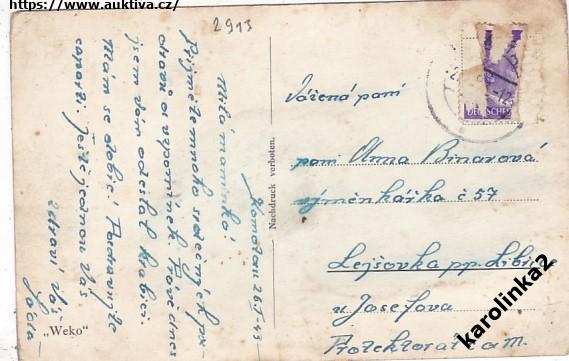 https://www.auktiva.cz/
2913
Komořany 26-I-43
Milá maminko!
Přijměte mnoho srdečných poz-
dravů a vzpomínek. Právě dnes
jsem Vám odeslal krabici.
Mám se dobře! Pozdravujte
Ještě jednou Vás
zdraví Váš
"Weko"
Nachdruck verboten.
DEUTSCHES
Vážená paní
paní Anna Binarová
výměnkářka č 57
Lejšovka pp. Libřic
u Josefova
Protektorat Č a M.
karolinka2